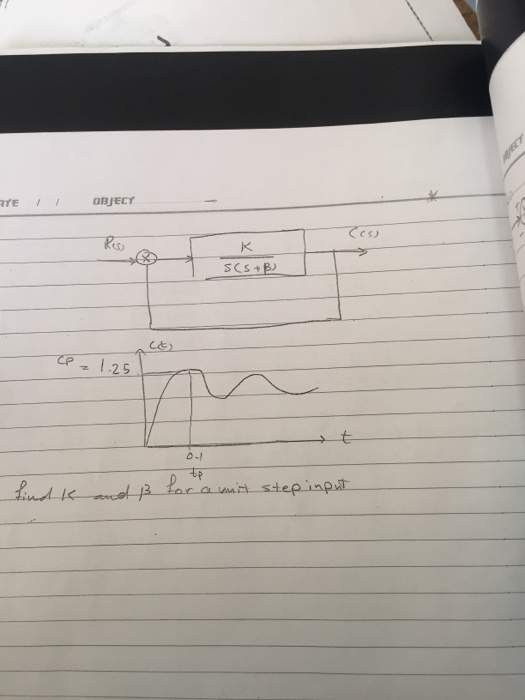 ATE / / OBJECT
R(s)
C(s)
K
S(S+β)
C(t)
CP = 1.25
t
0.1
tp
find K and β for a unit step input